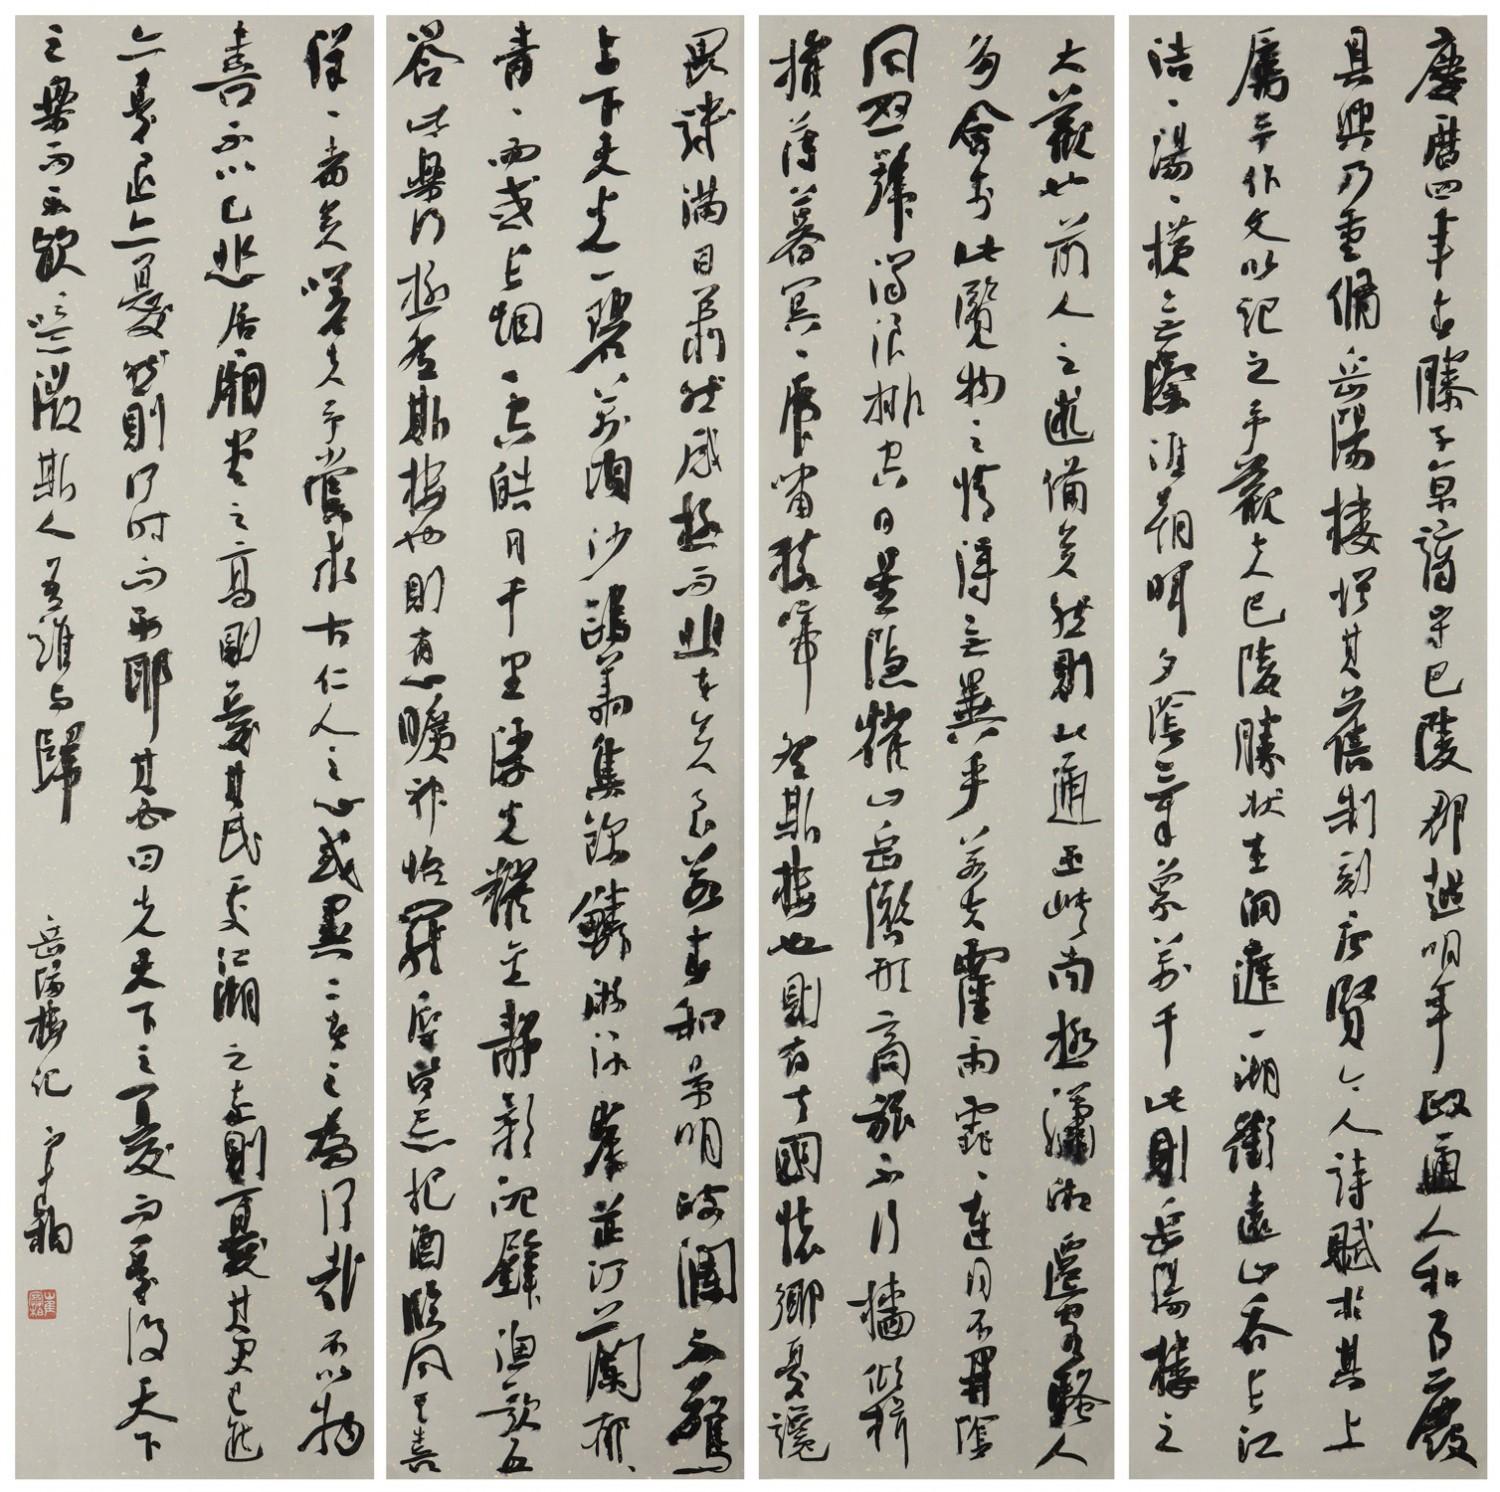 慶曆四年春滕子京謫守巴陵郡越明年政通人和百廢
具興乃重修岳陽樓增其舊制刻唐賢今人詩賦於其上
屬予作文以記之予觀夫巴陵勝狀在洞庭一湖銜遠山吞長江
浩浩湯湯橫無際涯朝暉夕陰氣象萬千此則岳陽樓之
大觀也前人之述備矣然則北通巫峽南極瀟湘遷客騷人
多會於此覽物之情得無異乎若夫霪雨霏霏連月不開陰
風怒號濁浪排空日星隱耀山岳潛形商旅不行檣傾楫
摧薄暮冥冥虎嘯猿啼登斯樓也則有去國懷鄉憂讒
畏譏滿目蕭然感極而悲者矣至若春和景明波瀾不驚
上下天光一碧萬頃沙鷗翔集錦鱗游泳岸芷汀蘭郁郁
青青而或長烟一空皓月千里浮光耀金靜影沉璧漁歌互
答此樂何極登斯樓也則有心曠神怡寵辱皆忘把酒臨風其喜
洋洋者矣嗟夫予嘗求古仁人之心或異二者之為何哉不以物
喜不以己悲居廟堂之高則憂其民處江湖之遠則憂其君是進
亦憂退亦憂然則何時而樂耶其必曰先天下之憂而憂後天下
之樂而樂歟噫微斯人吾誰與歸 岳陽樓記 寒柏